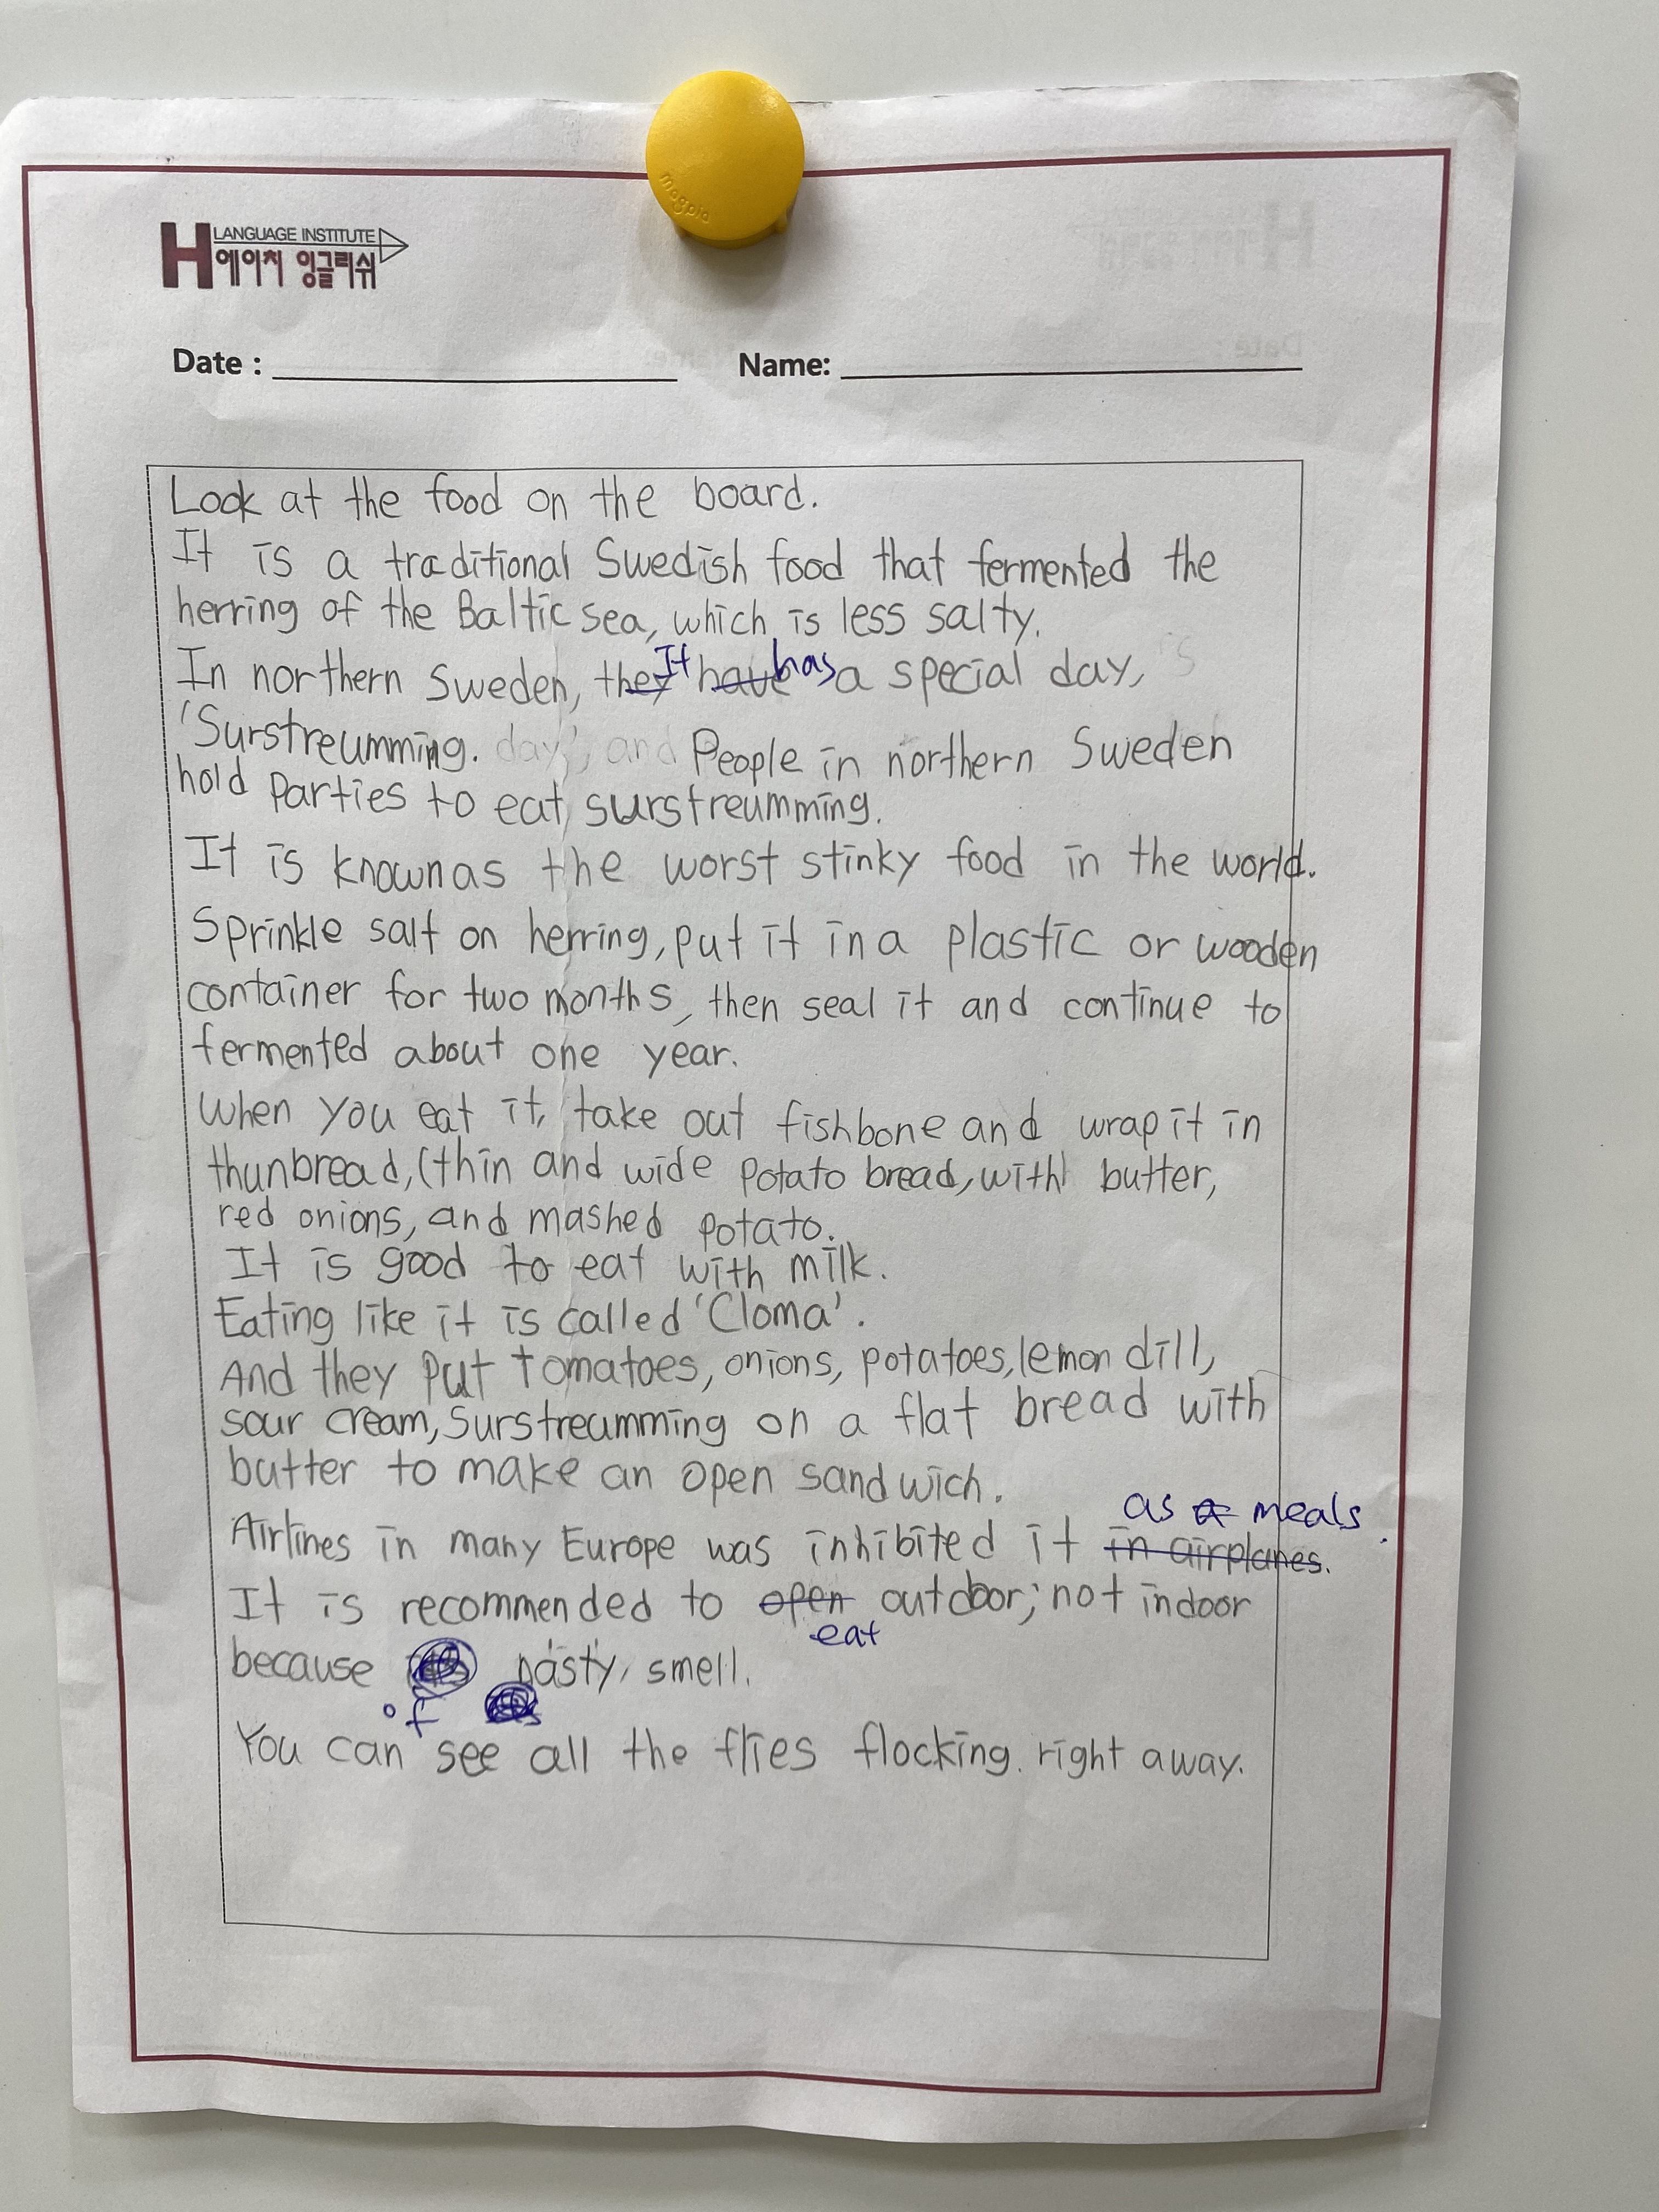 magpie
H LANGUAGE INSTITUTE
에이치 잉글리쉬
Date :
Name:
Look at the food on the board.
It is a traditional Swedish food that fermented the
herring of the Baltic sea, which is less salty.
In northern Sweden, they It have has a special day,
'Surstreumming. day', and People in northern Sweden
hold Parties to eat surstreumming.
It is known as the worst stinky food in the world.
Sprinkle salt on herring, put it in a plastic or wooden
container for two months, then seal it and continue to
fermented about one year.
When you eat it, take out fishbone and wrap it in
thunbread, (thin and wide potato bread, with) butter,
red onions, and mashed potato.
It is good to eat with milk.
Eating like it is called 'Cloma'.
And they put tomatoes, onions, potatoes, lemon dill,
sour cream, Surstreumming on a flat bread with
butter to make an open sandwich.
as a meals.
Airlines in many Europe was inhibited it in airplanes.
It is recommended to open outdoor, not indoor
eat
because nasty, smell.
of
You can see all the flies flocking. right away.